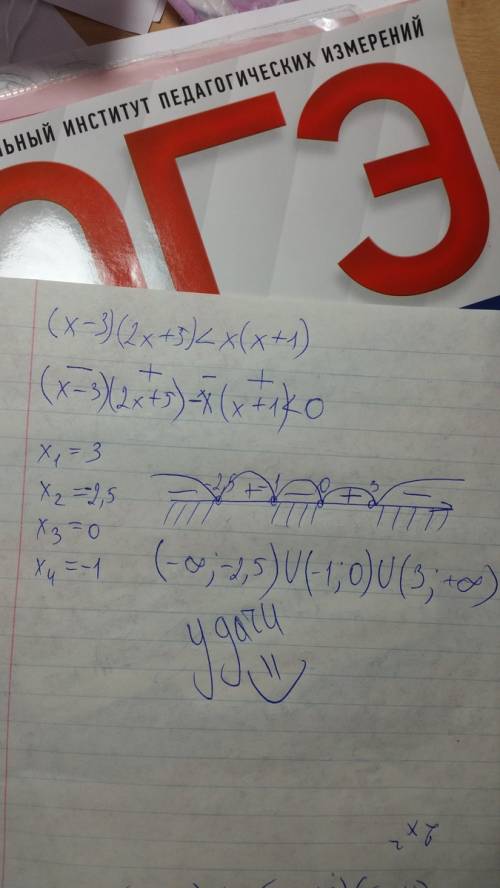 ЛЬНЫЙ ИНСТИТУТ ПЕДАГОГИЧЕСКИХ ИЗМЕРЕНИЙ
ОГЭ
(x-3)(2x+5)<x(x+1)
- + - +
(x-3)(2x+5)-x(x+1)<0
x₁=3
x₂=-2,5
x₃=0
x₄=-1
-2,5 -1 0 3
- + - + -
(-∞;-2,5)U(-1;0)U(3;+∞)
удачи